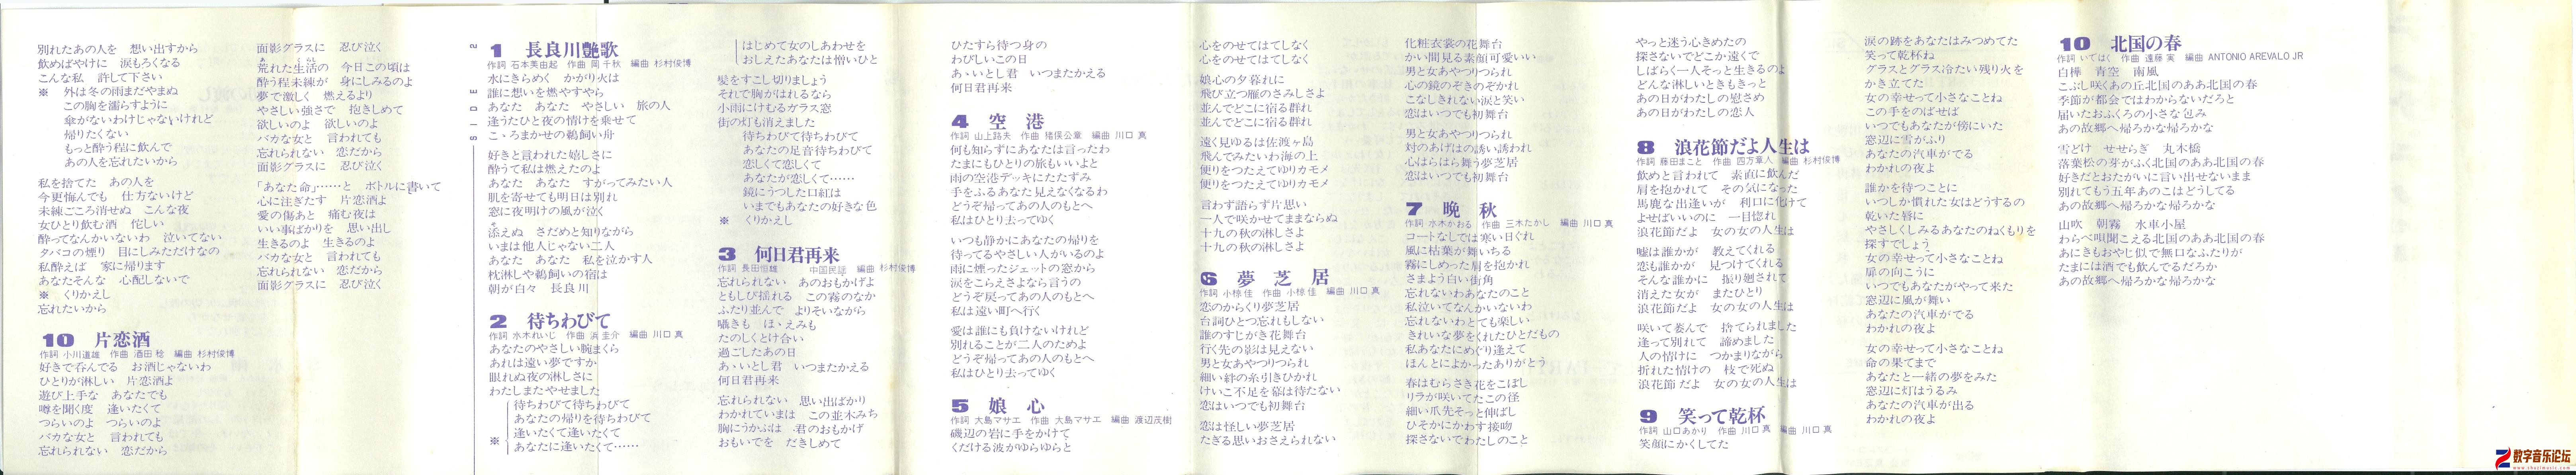 別れたあの人を　想い出すから
飲めばやけに　涙もろくなる
こんな私　許して下さい
※　外は冬の雨まだやまぬ
この胸を濡らすように
傘がないわけじゃないけれど
帰りたくない
もっと酔う程に飲んで
あの人を忘れたいから
私を捨てた　あの人を
今更悔んでも　仕方ないけど
未練ごころ消せぬ　こんな夜
女ひとり飲む酒　侘しい
酔ってなんかいないわ　泣いてない
タバコの煙り　目にしみただけなの
私酔えば　家に帰ります
あなたそんな　心配しないで
※　くりかえし
忘れたいから
10 片恋酒
作詞 小川道雄　作曲 酒田 稔　編曲 杉村俊博
好きで呑んでる　お酒じゃないわ
ひとりが淋しい　片恋酒よ
遊び上手な　あなたでも
噂を聞く度　逢いたくて
つらいのよ　つらいのよ
バカな女と　言われても
忘れられない　恋だから
面影グラスに　忍び泣く
荒れた生活の　今日この頃は
酔う程未練が　身にしみるのよ
夢で激しく　燃えるより
やさしい強さで　抱きしめて
欲しいのよ　欲しいのよ
バカな女と　言われても
忘れられない　恋だから
面影グラスに　忍び泣く
「あなた命」……と　ボトルに書いて
心に注ぎたす　片恋酒よ
愛の傷あと　痛む夜は
いい事ばかりを　思い出し
生きるのよ　生きるのよ
バカな女と　言われても
忘れられない　恋だから
面影グラスに　忍び泣く
SIDE 2
1 長良川艶歌
作詞 石本美由起　作曲 岡 千秋　編曲 杉村俊博
水にきらめく　かがり火は
誰に想いを燃やすやら
あなた　あなた　やさしい　旅の人
逢うたひと夜の情けを乗せて
こゝろまかせの鵜飼い舟
好きと言われた嬉しさに
酔うて私は燃えたのよ
あなた　あなた　すがってみたい人
肌を寄せても明日は別れ
窓に夜明けの風が泣く
添えぬ　さだめと知りながら
いまは他人じゃない二人
あなた　あなた　私を泣かす人
枕淋しや鵜飼いの宿は
朝が白々　長良川
2 待ちわびて
作詞 水木れいじ　作曲 浜 圭介　編曲 川口 真
あなたのやさしい腕まくら
あれは遠い夢ですか
眠れぬ夜の淋しさに
わたしまたやせました
※
待ちわびて待ちわびて
あなたの帰りを待ちわびて
逢いたくて逢いたくて
あなたに逢いたくて……
はじめて女のしあわせを
おしえたあなたは憎いひと
髪をすこし切りましょう
それで胸がはれるなら
小雨にけむるガラス窓
街の灯も消えました
待ちわびて待ちわびて
あなたの足音待ちわびて
恋しくて恋しくて
あなたが恋しくて……
鏡にうつした口紅は
いまでもあなたの好きな色
※　くりかえし
3 何日君再来
作詞 長田恒雄　中国民謡　編曲 杉村俊博
忘れられない　あのおもかげよ
ともしび揺れる　この霧のなか
ふたり並んで　よりそいながら
囁きも　ほゝえみも
たのしくとけ合い
過ごしたあの日
あゝいとし君　いつまたかえる
何日君再来
忘れられない　思い出ばかり
わかれていまは　この並木みち
胸にうかぶは　君のおもかげ
おもいでを　だきしめて
ひたすら待つ身の
わびしいこの日
あゝいとし君　いつまたかえる
何日君再来
4 空港
作詞 山上路夫　作曲 猪俣公章　編曲 川口 真
何も知らずにあなたは言ったわ
たまにもひとりの旅もいいよと
雨の空港デッキにたたずみ
手をふるあなた見えなくなるわ
どうぞ帰ってあの人のもとへ
私はひとり去ってゆく
いつも静かにあなたの帰りを
待ってるやさしい人がいるのよ
雨に煙ったジェットの窓から
涙をこらえさよなら言うの
どうぞ戻ってあの人のもとへ
私は遠い町へ行く
愛は誰にも負けないけれど
別れることが二人のためよ
どうぞ帰ってあの人のもとへ
私はひとり去ってゆく
5 娘心
作詞 大島マサエ　作曲 大島マサエ　編曲 渡辺茂樹
磯辺の岩に手をかけて
くだける波がゆらゆらと
心をのせてはてしなく
心をのせてはてしなく
娘心の夕暮れに
飛び立つ雁のさみしさよ
並んでどこに宿る群れ
並んでどこに宿る群れ
遠く見ゆるは佐渡ヶ島
飛んでみたいわ海の上
便りをつたえてゆりカモメ
便りをつたえてゆりカモメ
言わず語らず片思い
一人で咲かせてままならぬ
十九の秋の淋しさよ
十九の秋の淋しさよ
6 夢芝居
作詞 小椋 佳　作曲 小椋 佳　編曲 川口 真
恋のからくり夢芝居
台詞ひとつ忘れもしない
誰のすじがき花舞台
行く先の影は見えない
男と女あやつりつられ
細い絆の糸引きひかれ
けいこ不足を幕は待たない
恋はいつでも初舞台
恋は怪しい夢芝居
たぎる思いおさえられない
化粧衣裳の花舞台
かい間見る素顔可愛いい
男と女あやつりつられ
心の鏡のぞきのぞかれ
こなしきれない涙と笑い
恋はいつでも初舞台
男と女あやつりつられ
対のあげはの誘い誘われ
心はらはら舞う夢芝居
恋はいつでも初舞台
7 晩秋
作詞 水木かおる　作曲 三木たかし　編曲 川口 真
コートなしでは寒い日ぐれ
風に枯葉が舞いちる
霧にしめった肩を抱かれ
さまよう白い街角
忘れないわあなたのこと
私泣いてなんかいないわ
忘れないわとても楽しい
きれいな夢をくれたひとだもの
私あなたにめぐり逢えて
ほんとによかったありがとう
春はむらさき花をこぼし
リラが咲いてたこの径
細い爪先そっと伸ばし
ひそかにかわす接吻
探さないでわたしのこと
やっと迷う心きめたの
探さないでどこか遠くで
しばらく一人そっと生きるのよ
どんな淋しいときもきっと
あの日がわたしの慰さめ
あの日がわたしの恋人
8 浪花節だよ人生は
作詞 藤田まこと　作曲 四方章人　編曲 杉村俊博
飲めと言われて　素直に飲んだ
肩を抱かれて　その気になった
馬鹿な出逢いが　利口に化けて
よせばいいのに　一目惚れ
浪花節だよ　女の女の人生は
嘘は誰かが　教えてくれる
恋も誰かが　見つけてくれる
そんな誰かに　振り廻されて
消えた女が　またひとり
浪花節だよ　女の女の人生は
咲いて萎んで　捨てられました
逢って別れて　諦めました
人の情けに　つかまりながら
折れた情けの　枝で死ぬ
浪花節だよ　女の女の人生は
9 笑って乾杯
作詞 山口あかり　作曲 川口 真　編曲 川口 真
笑顔にかくしてた
涙の跡をあなたはみつめてた
笑って乾杯ね
グラスとグラス冷たい残り火を
かき立てた
女の幸せって小さなことね
この手をのばせば
いつでもあなたが傍にいた
窓辺に雪がふり
あなたの汽車がでる
わかれの夜よ
誰かを待つことに
いつしか慣れた女はどうするの
乾いた唇に
やさしくしみるあなたのぬくもりを
探すでしょう
女の幸せって小さなことね
扉の向こうに
いつでもあなたがやって来た
窓辺に風が舞い
あなたの汽車がでる
わかれの夜よ
女の幸せって小さなことね
命の果てまで
あなたと一緒の夢をみた
窓辺に灯はうるみ
あなたの汽車が出る
わかれの夜よ
10 北国の春
作詞 いではく　作曲 遠藤 実　編曲 ANTONIO AREVALO JR
白樺　青空　南風
こぶし咲くあの丘北国のああ北国の春
季節が都会ではわからないだろと
届いたおふくろの小さな包み
あの故郷へ帰ろかな帰ろかな
雪どけ　せせらぎ　丸木橋
落葉松の芽がふく北国のああ北国の春
好きだとおたがいに言い出せないまま
別れてもう五年あのこはどうしてる
あの故郷へ帰ろかな帰ろかな
山吹　朝霧　水車小屋
わらべ唄聞こえる北国のああ北国の春
あにきもおやじ似で無口なふたりが
たまには酒でも飲んでるだろか
あの故郷へ帰ろかな帰ろかな
数字音乐论坛